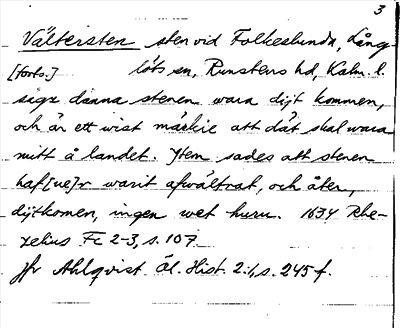 3
Vältersten sten vid Folkeslunda, Lång-
[forts.] löts sn, Runstens hd, Kalm. l.
säge denna stenen wara dijt kommen,
och är ett wist märkie att dät skal wara
mitt å landet. Item sades att stenen
haf[ue]r warit afwältrat, och åter,
dijtkomen, ingen wet huru. 1634 Rhe-
zelius Fc 2-3, s. 107.
Jfr Ahlqvist Öl. Hist. 2:1, s. 245 f.